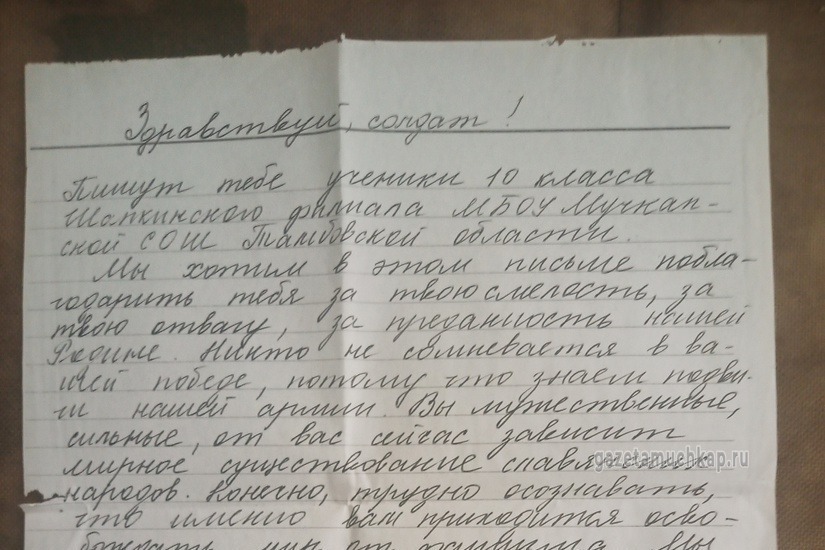 Здравствуй, солдат!
Пишут тебе ученики 10 класса
Шапкинского филиала МБОУ Мучкап-
ской СОШ Тамбовской области.
Мы хотим в этом письме побла-
годарить тебя за твою смелость, за
твою отвагу, за преданность нашей
Родине. Никто не сомневается в ва-
шей победе, потому что знаем подви-
ги нашей армии. Вы мужественные,
сильные, от вас сейчас зависит
мирное существование славянских
gazetamuchkap.ru
народов. Конечно, трудно осознавать,
что именно вам приходится осво-
бождать мир от фашизма. Мы